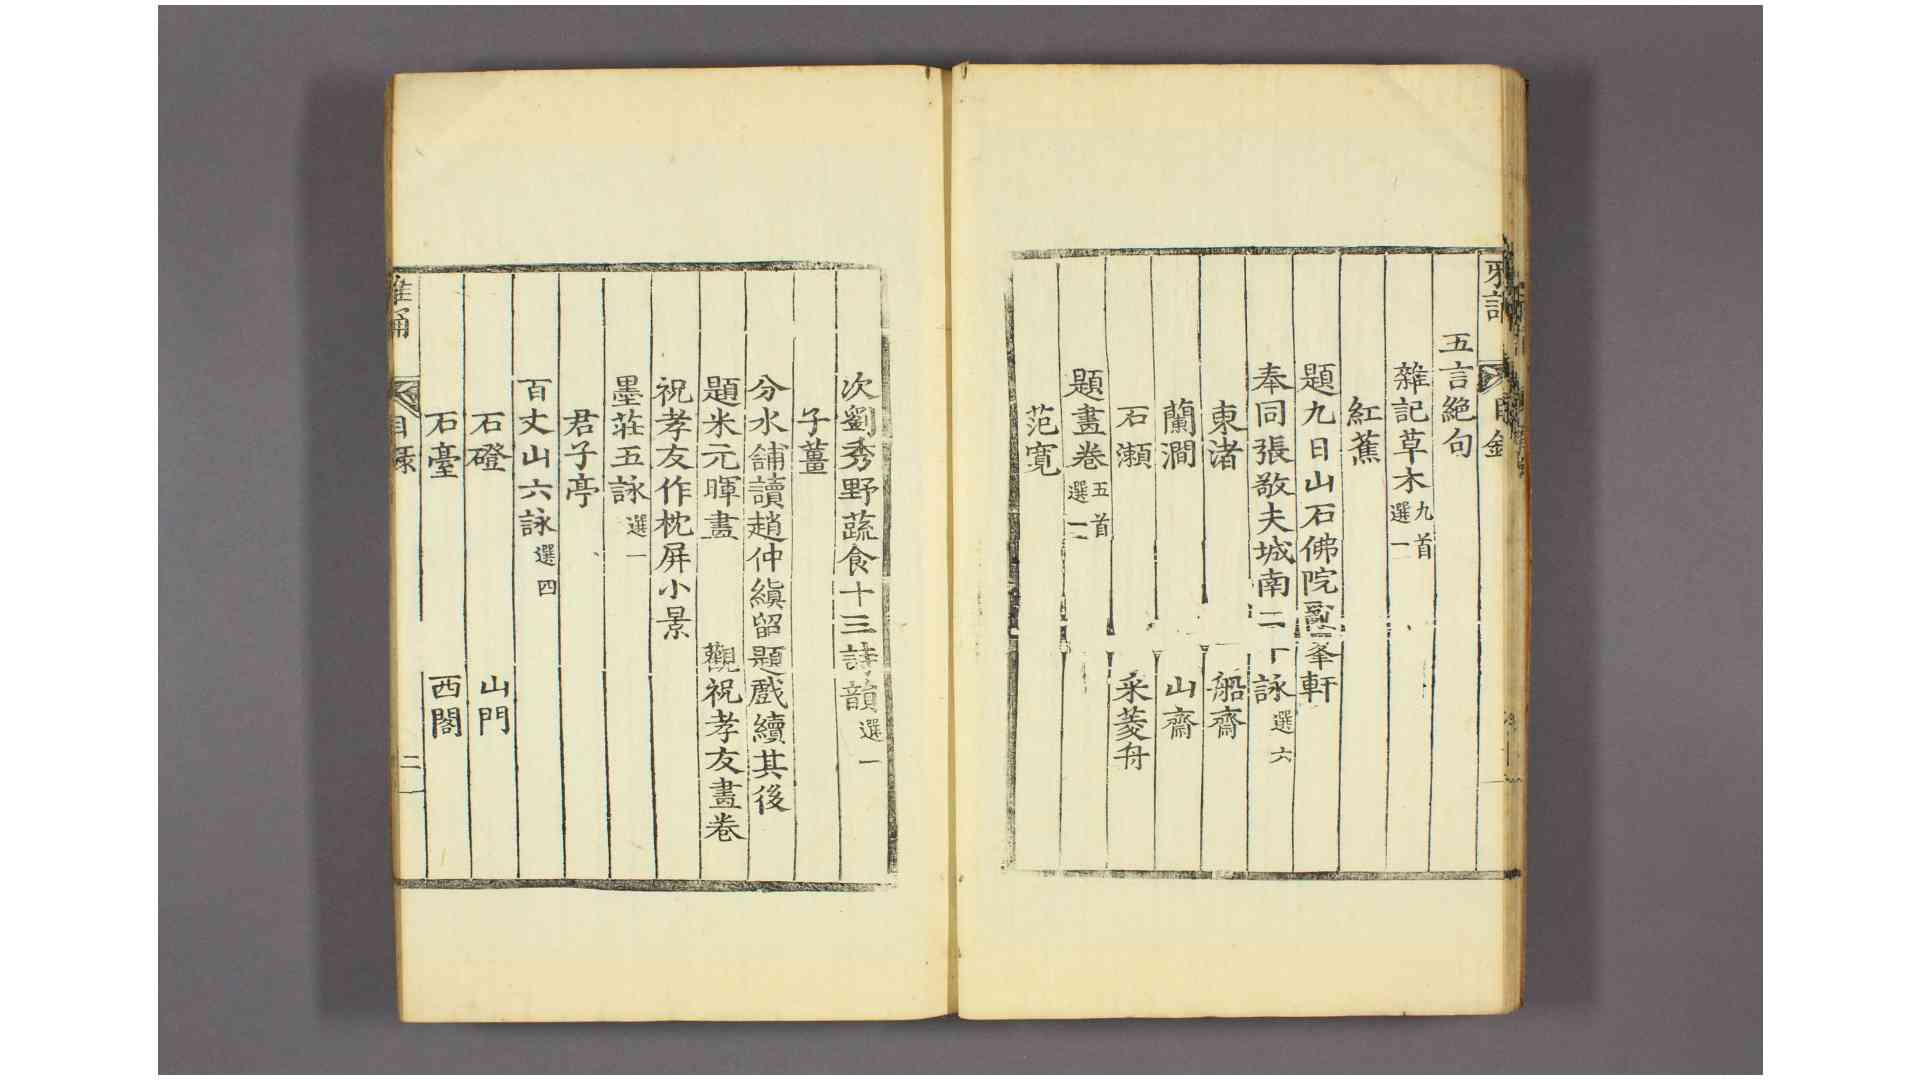 五言絶句
雜記草木九首選一
紅蕉
題九日山石佛院亂峯軒
奉同張敬夫城南二十詠選六
東渚 船齋
蘭澗 山齋
石瀨 采菱舟
題畫卷五首選二
范寬
次劉秀野蔬食十三詩韻選一
子薑
分水舖讀趙仲縝留題戲續其後
題米元暉畫 觀祝孝友畫卷
祝孝友作枕屏小景
墨莊五詠選一
君子亭
百丈山六詠選四
石磴 山門
石臺 西閣
雅誦 目錄 二